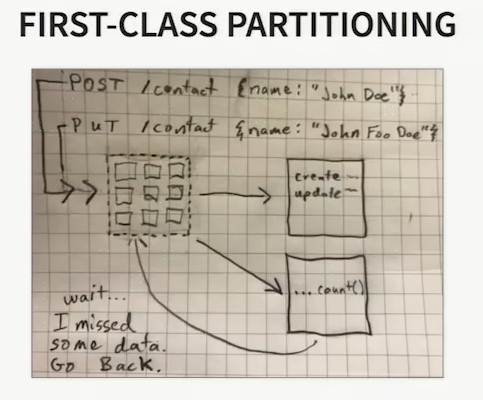 FIRST-CLASS PARTITIONING
POST /contact {name: "John Doe"}
PUT /contact {name: "John Foo Doe"}
create —
update —
... count()
wait...
I missed
some data.
Go Back.